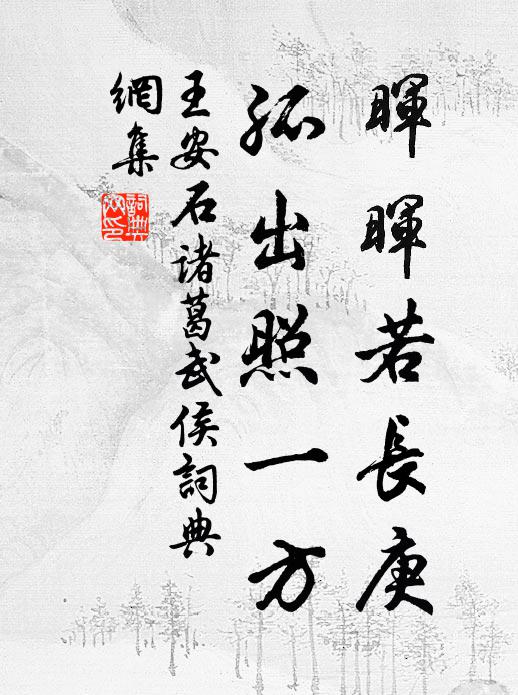 暉暉若長庚
孤出照一方
王安石诸葛武侯詞典
網集
詞典
网印